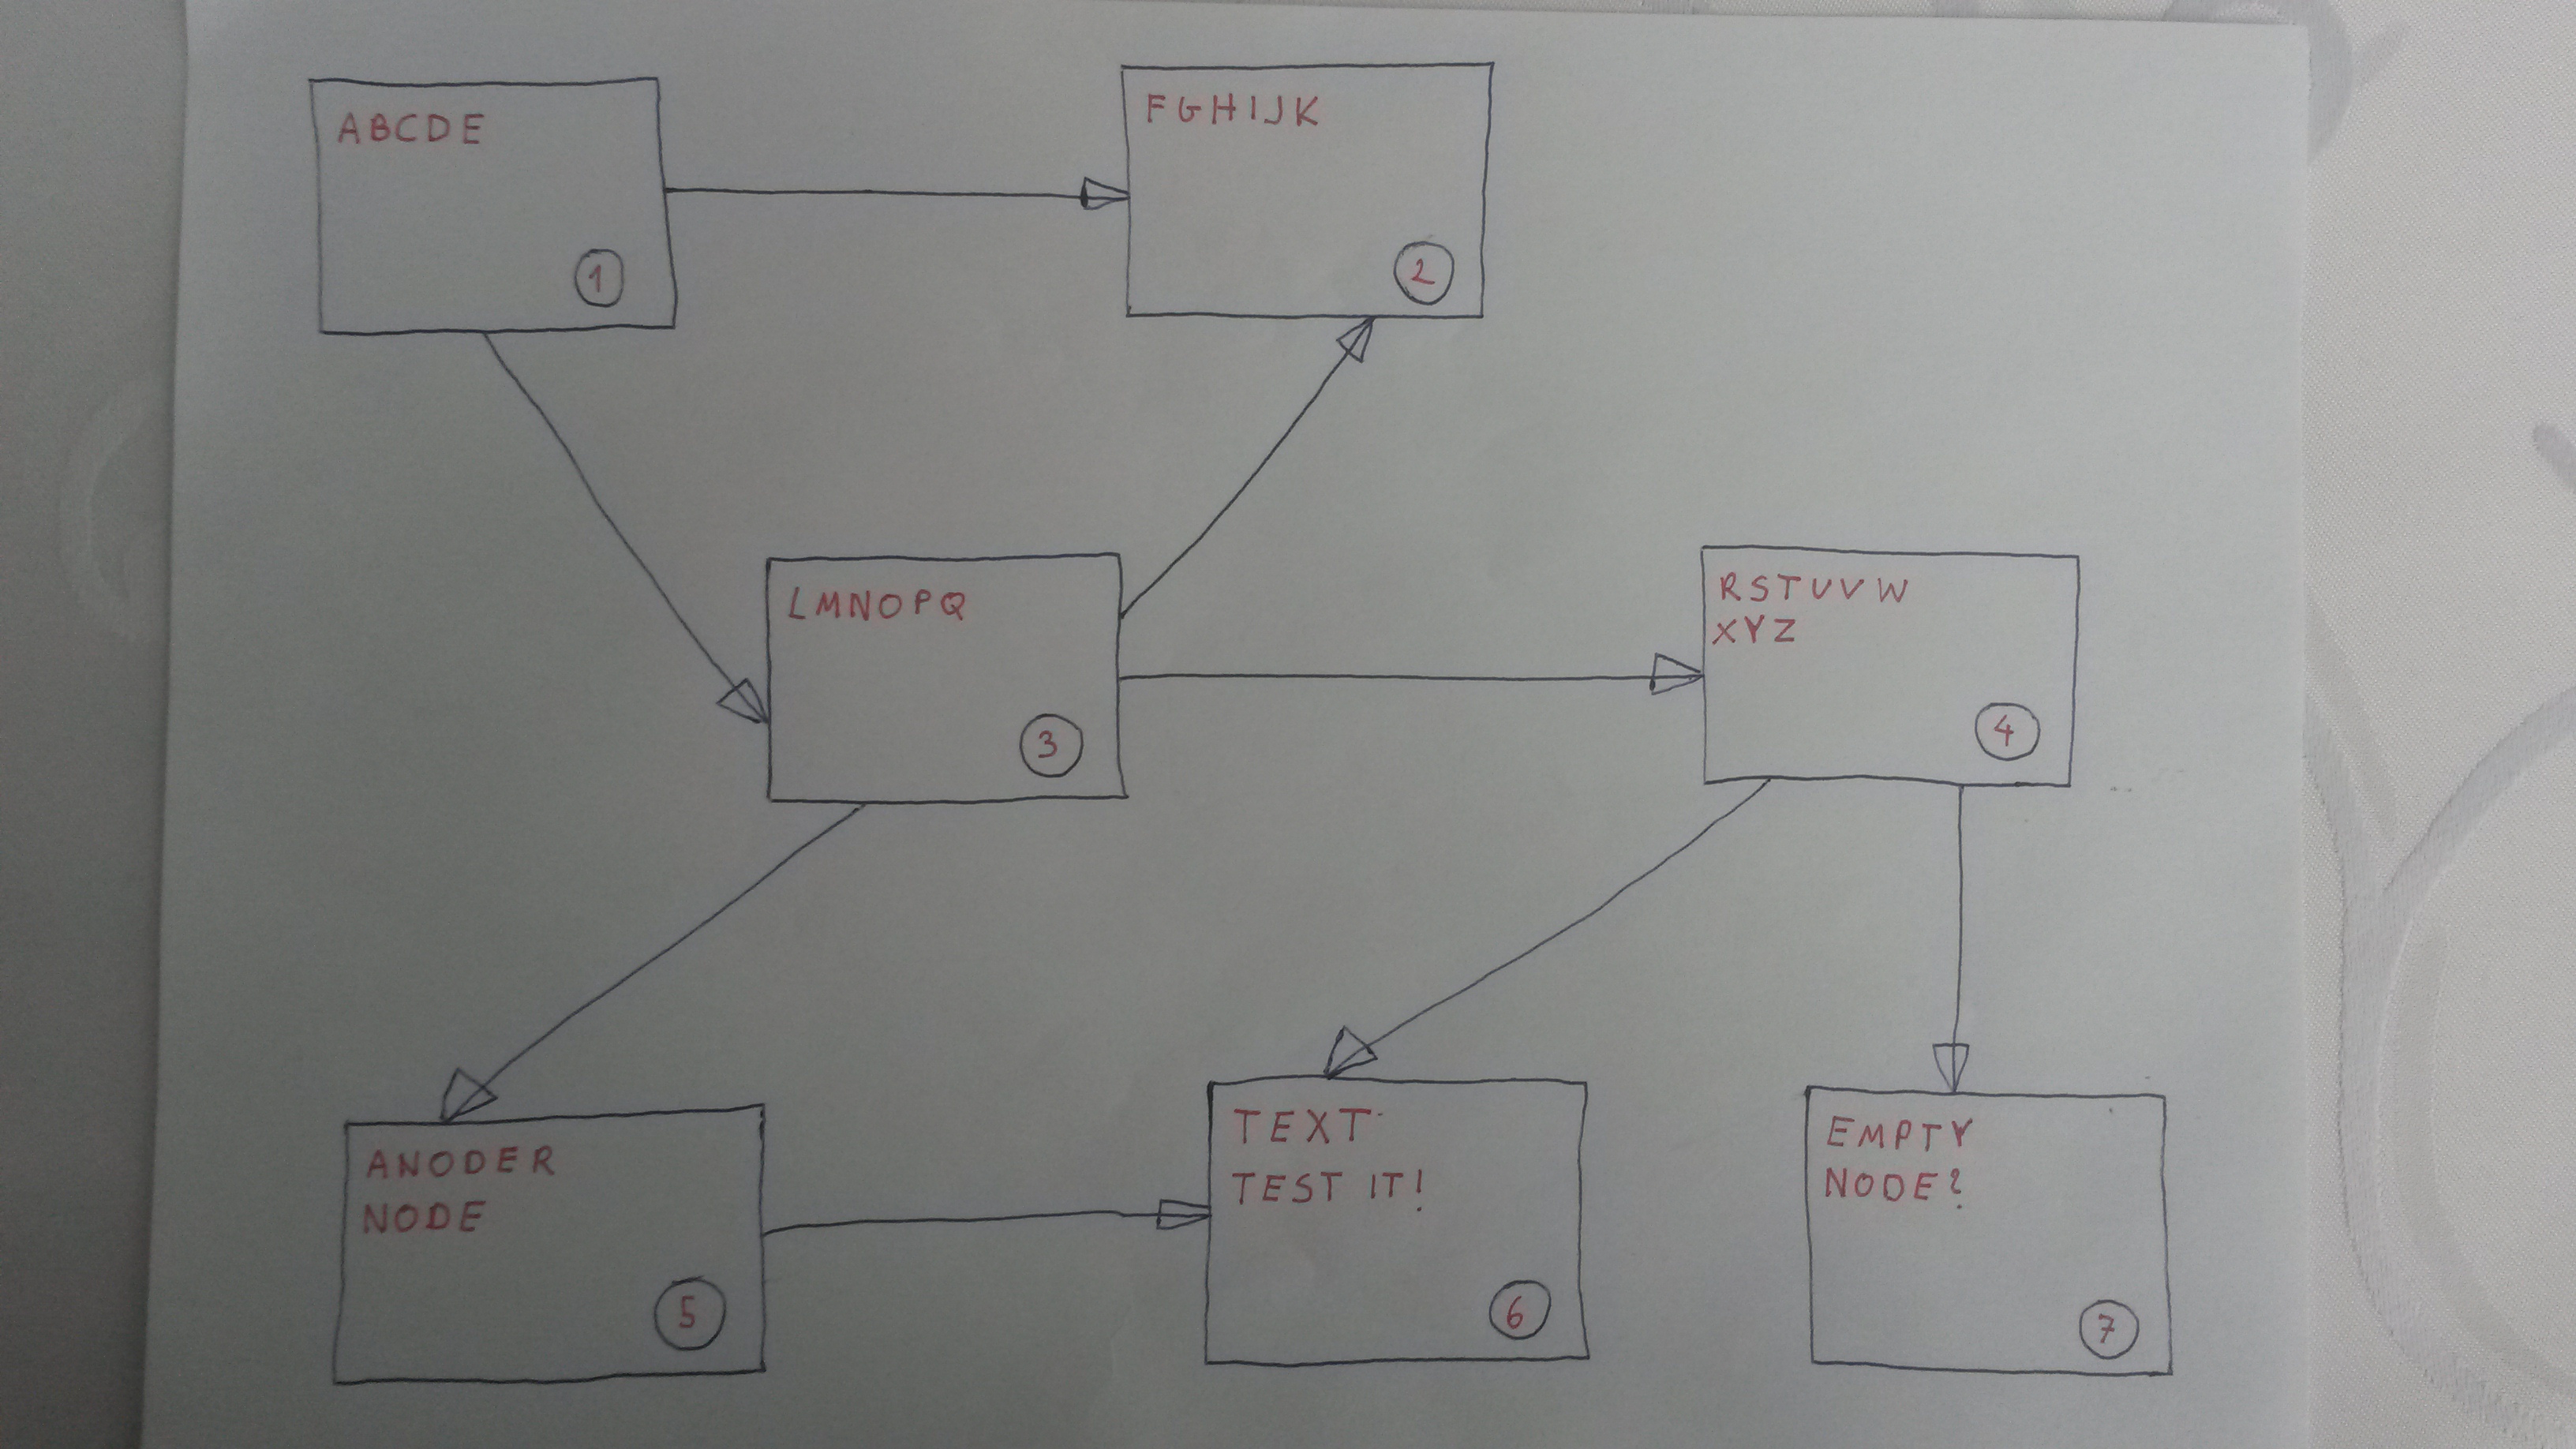 ABCDE
1
FGHIJK
2
LMNOPQ
3
RSTUVW
XYZ
4
ANODER
NODE
5
TEXT
TEST IT!
6
EMPTY
NODE?
7